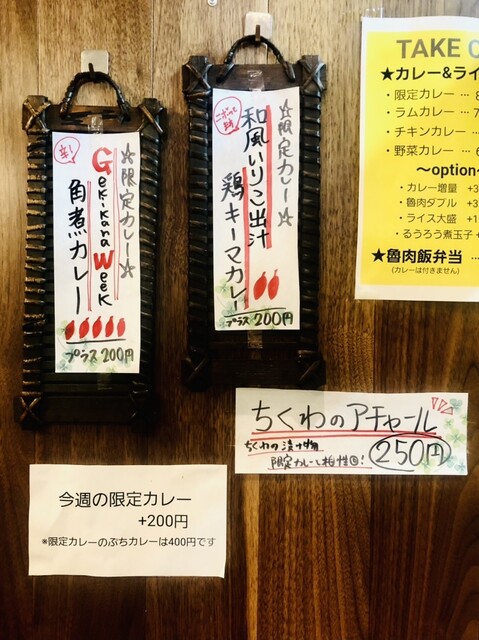 辛!
☆限定カレー☆
Gekikara Week
角煮カレー
プラス200円
☆限定カレー☆
和風いりこ出汁
鶏キーマカレー
プラス200円
TAKE
★カレー&ライ
・限定カレー …
・ラムカレー …
・チキンカレー …
・野菜カレー …
～option
・カレー増量 +3
・魯肉ダブル +3
・ライス大盛 +1
・るうろう煮玉子 +
★魯肉飯弁当 …
(カレーは付きません)
ちくわのアチャール
ちくわの漬け物
限定カレーと相性◎!
250円
今週の限定カレー
+200円
※限定カレーのぷちカレーは400円です